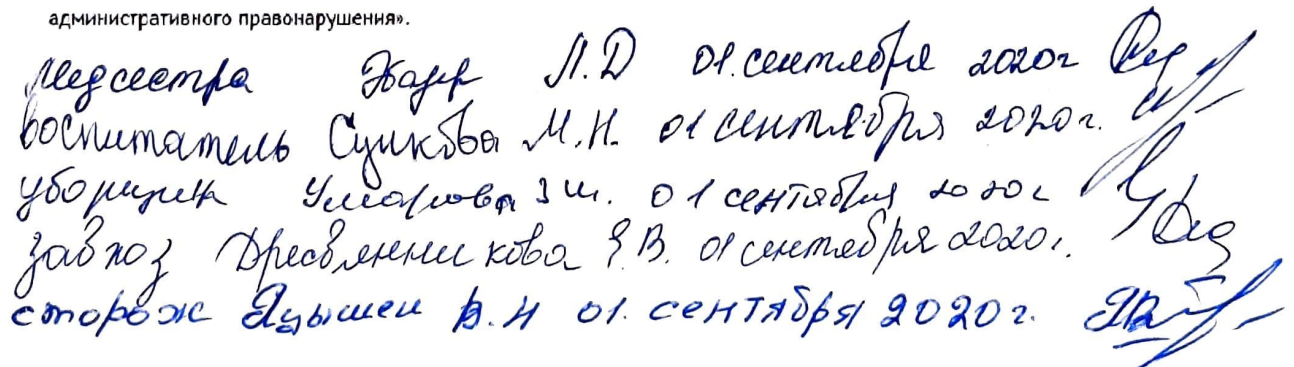 административного правонарушения».
медсестра Л.Д 01.сентября 2020г
воспитатель М.Н. 01 сентября 2020г.
уборщик Умарова З Ш. 01 сентября 2020г
завхоз Дресвянникова Е.В. 01 сентября 2020г.
сторож Яцышен В.Н 01. сентября 2020г.